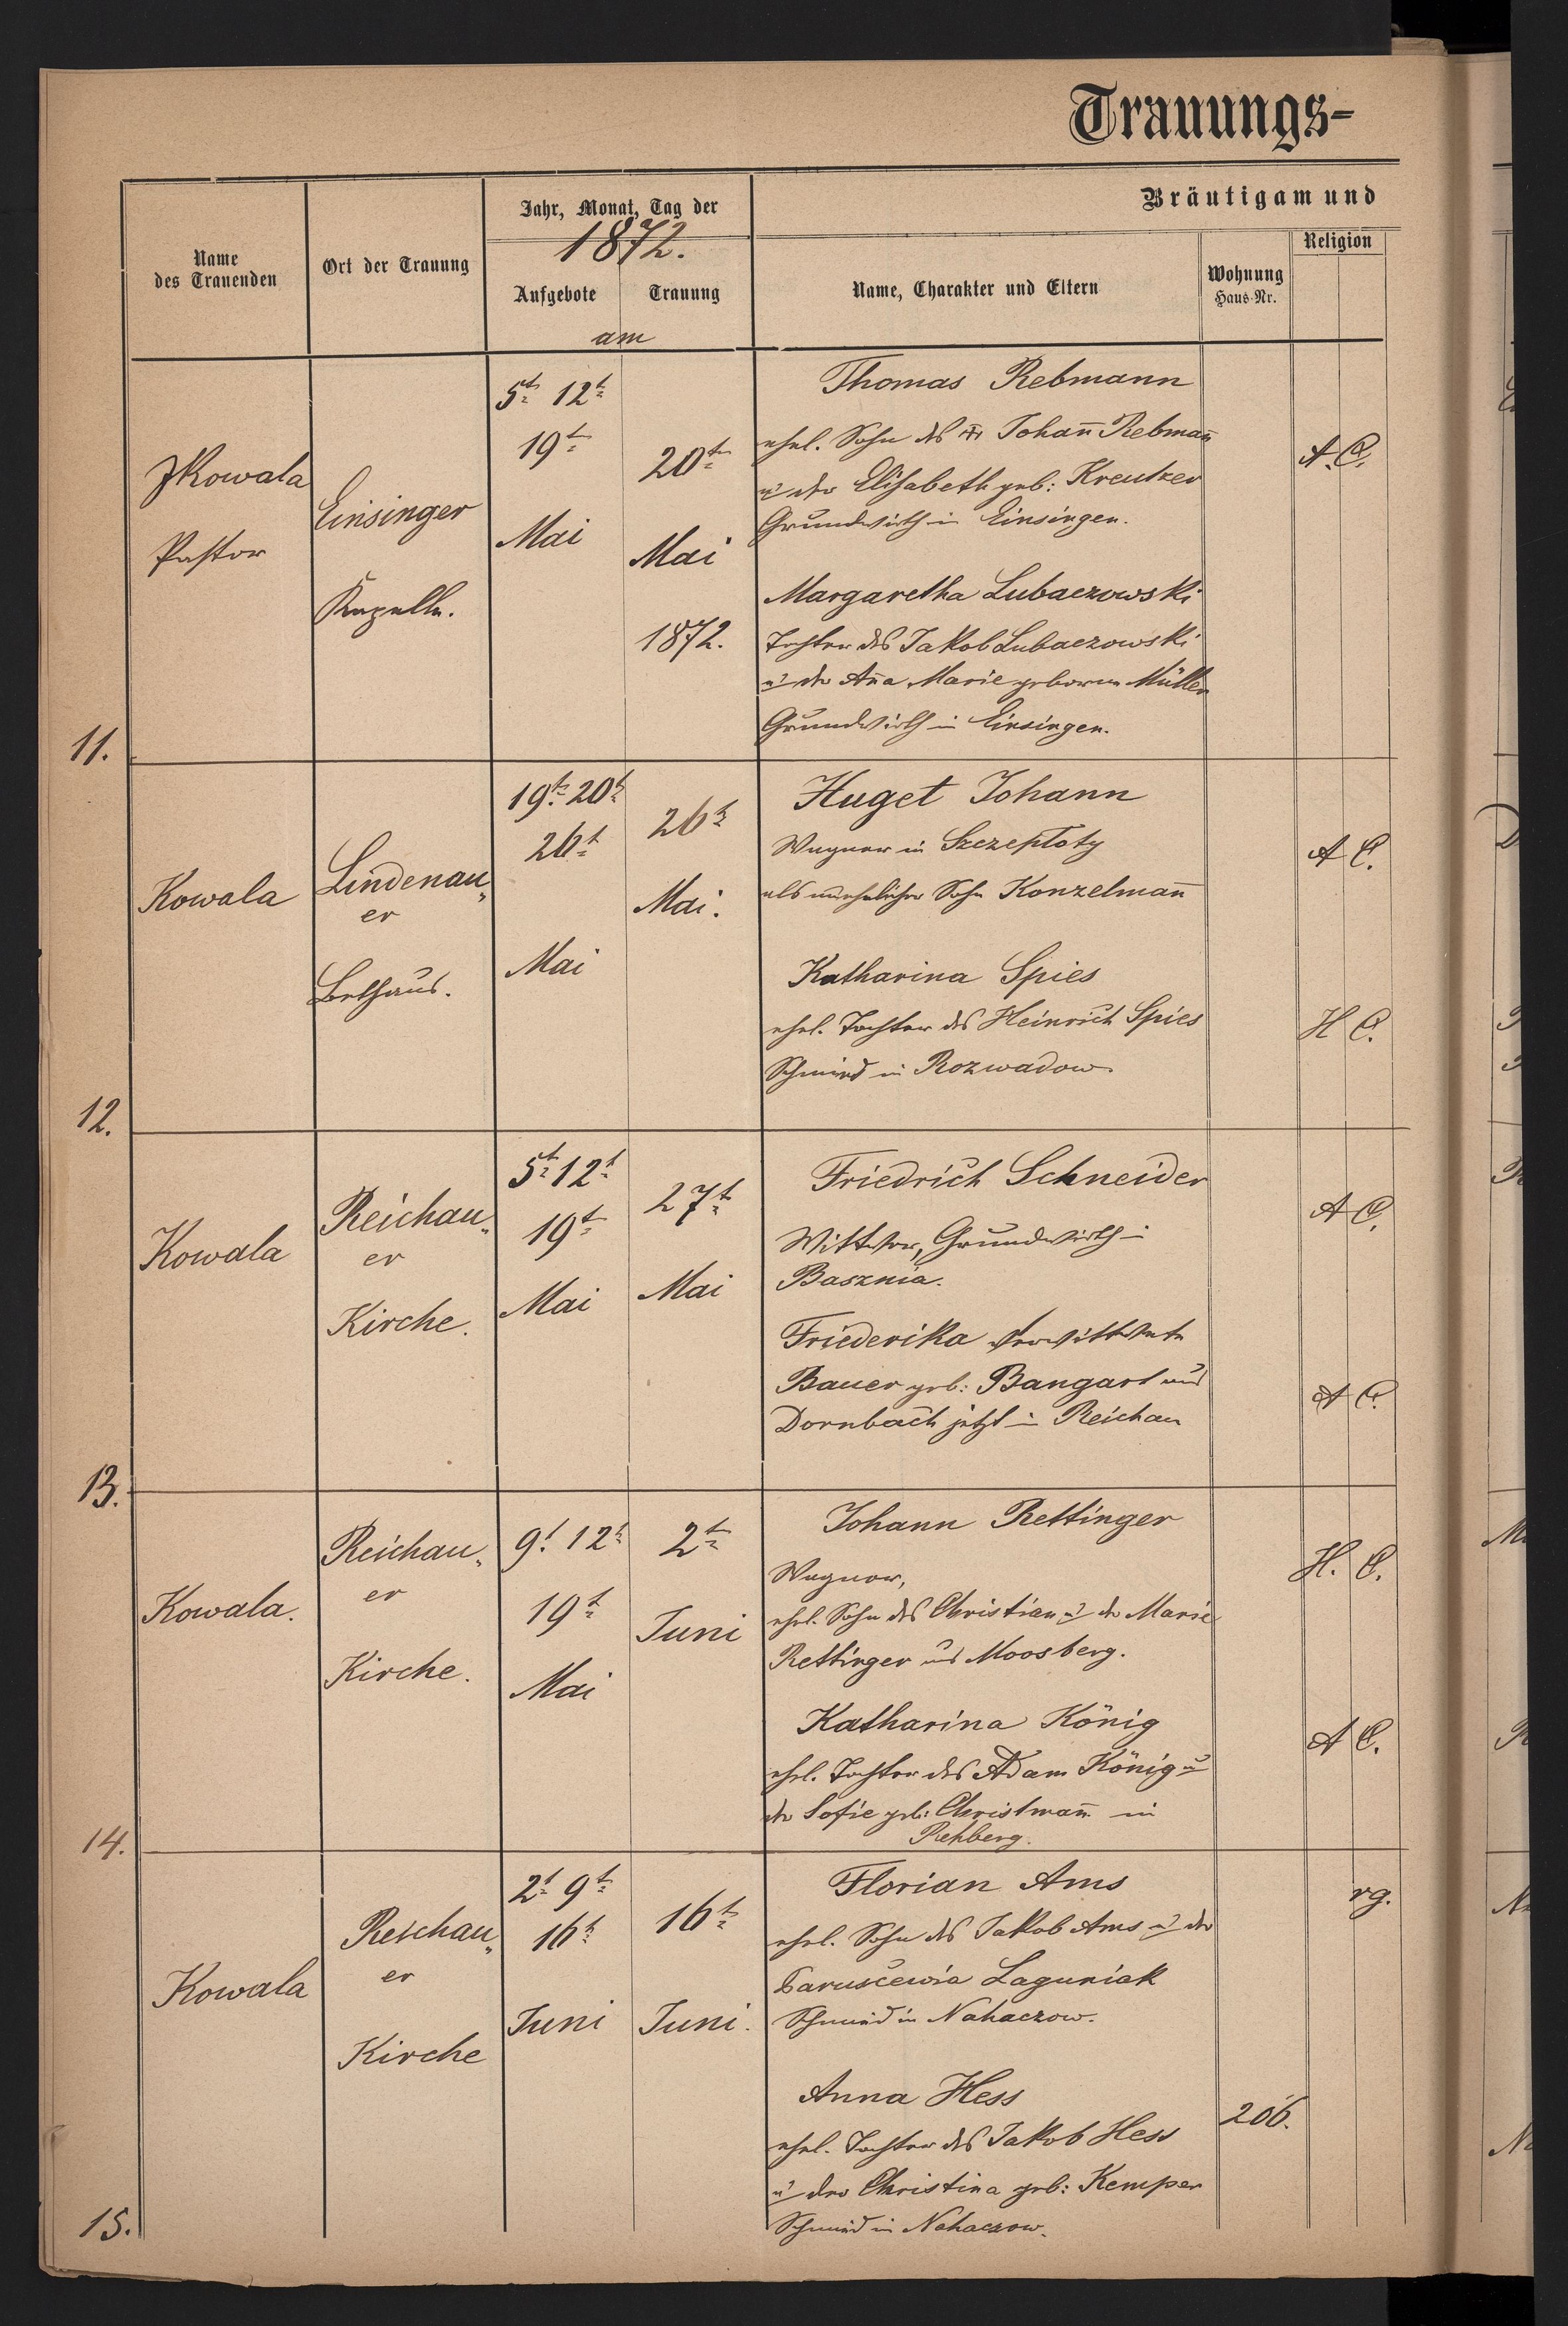 Trauungs-
Bräutigam und
Name
des Trauenden
Ort der Trauung
Jahr, Monat, Tag der
1872.
Aufgebote
Trauung
am
Name, Charakter und Eltern
Wohnung
Haus-Nr.
Religion
11.
JKowala
Pastor
Einsinger
Kapelle.
5t 12t
19t
Mai
20t
Mai
1872.
Thomas Rebmann
ehel. Sohn des Johan̅ Rebman̅
u der Elisabeth geb: Kreutzer
Grundwirth in Einsingen.
A. C.
Margaretha Lubaczowski
Tochter des Jakob Lubaczowski
u der An̅a Marie geboren Müller
Grundwirth in Einsingen.
12.
Kowala
Lindenau„
er
Bethaus.
19t 20t
26t
Mai
26t
Mai.
Huget Johann
Wagner in Szczeploty
als unehelicher Sohn Konzelman̅
A C.
Katharina Spies
ehel. Tochter des Heinrich Spies
Schmied in Rozwadow.
H C.
13.
Kowala
Reichau„
er
Kirche.
5t 12t
19t
Mai
27t
Mai
Friedrich Schneider
Wittwer, Grundwirth in
Basznia.
A C.
Friederika verwittwete
Bauer geb: Bangart aus
Dornbach jetzt in Reichau
A C.
14.
Kowala.
Reichau„
er
Kirche.
9t 12t
19t
Mai
2t
Juni
Johann Rettinger
Wagner,
ehel. Sohn des Christian u der Marie
Rettinger aus Moosberg.
H. C.
Katharina König
ehel. Tochter des Adam König u
der Sofie geb: Christman̅ in
Rehberg.
A C.
15.
Kowala
Reichau„
er
Kirche
2t 9t
16t
Juni
16t
Juni.
Florian Ams
ehel. Sohn des Jakob Ams u der
Laguniak
Schmied in Nahaczow.
rg.
Anna Hess
ehel. Tochter des Jakob Hess
u der Christina geb: Kemper
Schmied in Nahaczow.
206.